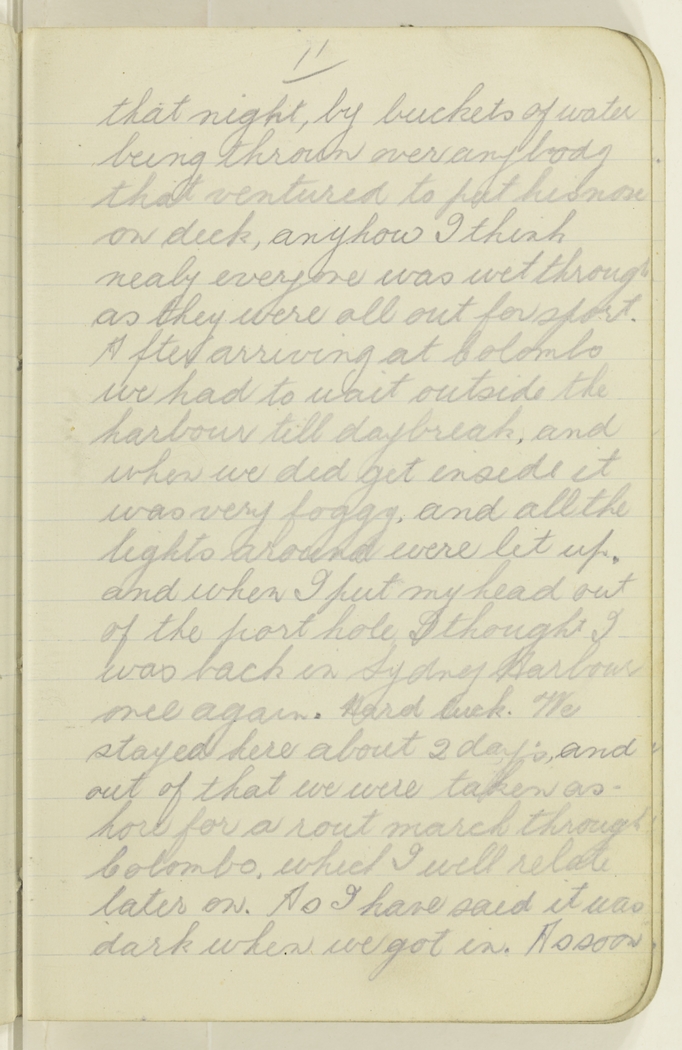 11
that night, by buckets of water
being thrown over anybody
that ventured to put his nose
on deck, anyhow I think
nealy everyone was wet through
as they were all out for sport.
After arriving at Colombo
we had to wait outside the
harbour till daybreak, and
when we did get inside it
was very foggy, and all the
lights around were lit up.
and when I put my head out
of the port hole I thought I
was back in Sydney Harbour
once again. Hard luck. We
stayed here about 2 day's, and
out of that we were taken as-
hore for a rout march through
Colombo, which I will relate
later on. As I have said it was
dark when we got in. As soon